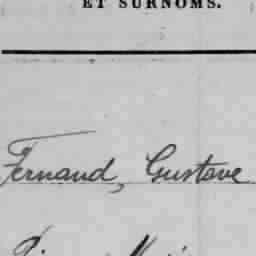 ET SURNOMS.
Fernand, Gustave